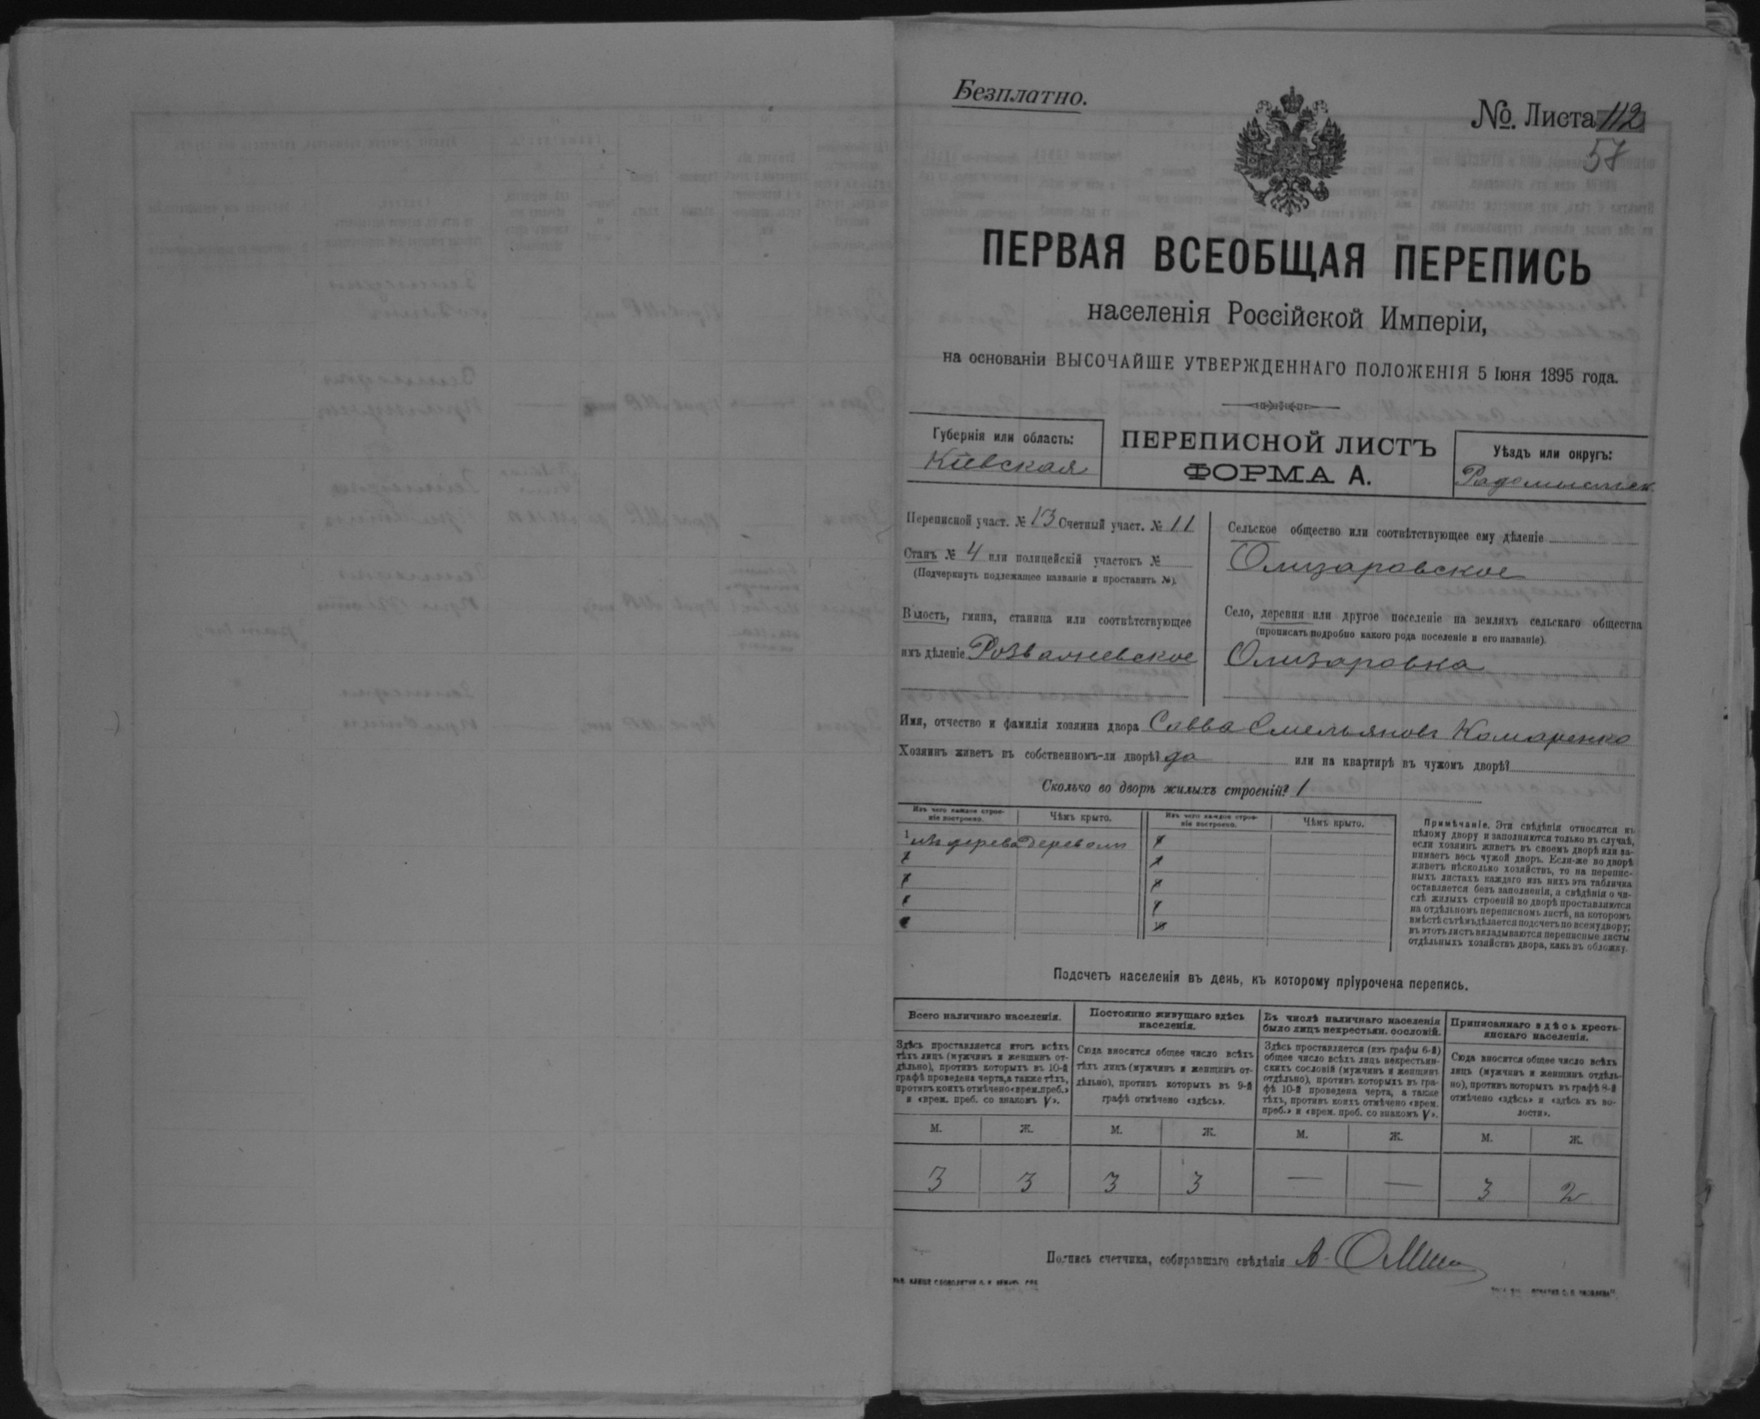 Безплатно.
№. Листа 112
57
ПЕРВАЯ ВСЕОБЩАЯ ПЕРЕПИСЬ
населенія Россійской Имперіи,
на основаніи ВЫСОЧАЙШЕ УТВЕРЖДЕННАГО ПОЛОЖЕНІЯ 5 Іюня 1895 года.
Губернія или область:
Кіевская
ПЕРЕПИСНОЙ ЛИСТЪ
ФОРМА А.
Уѣздъ или округъ:
Радомысльск
Переписной участ. № 13 Счетный участ. № 11
Станъ № 4 или полицейскій участокъ №
(Подчеркнуть подлежащее названіе и проставить №).
Волость, гмина, станица или соотвѣтствующее
имъ дѣленіе Розважевское
Сельское общество или соотвѣтствующее ему дѣленіе
Олизаровское
Село, деревня или другое поселеніе на земляхъ сельскаго общества
(прописать подробно какого рода поселеніе и его названіе).
Олизаровка
Имя, отчество и фамилія хозяина двора Савва Омельяновъ Комаренко
Хозяинъ живетъ въ собственномъ-ли дворѣ? да или на квартирѣ въ чужомъ дворѣ?
Сколько во дворѣ жилыхъ строеній? 1
Изъ чего каждое строе-
ніе построено.
Чѣмъ крыто.
Изъ чего каждое строе-
ніе построено.
Чѣмъ крыто.
1 изъ дерева деревом
Примѣчаніе. Эти свѣдѣнія относятся къ
цѣлому двору и заполняются только въ случаѣ,
если хозяинъ живетъ въ своемъ дворѣ или за-
нимаетъ весь чужой дворъ. Если-же во дворѣ
живетъ нѣсколько хозяйствъ, то на перепис-
ныхъ листахъ каждаго изъ нихъ эта табличка
оставляется безъ заполненія, а свѣдѣнія о чи-
слѣ жилыхъ строеній во дворѣ проставляются
на отдѣльномъ переписномъ листѣ, на которомъ
вмѣстѣ съ тѣмъ дѣлается подсчетъ по всему двору;
въ этотъ листъ вкладываются переписные листы
отдѣльныхъ хозяйствъ двора, какъ въ обложку.
Подсчетъ населенія въ день, къ которому пріурочена перепись.
Всего наличнаго населенія.
Здѣсь проставляется итогъ всѣхъ
тѣхъ лицъ (мужчинъ и женщинъ от-
дѣльно), противъ которыхъ въ 10-й
графѣ проведена черта, а также тѣхъ,
противъ коихъ отмѣчено «врем. преб.»
и «врем. преб. со знакомъ V».
Постоянно живущаго здѣсь
населенія.
Сюда вносится общее число всѣхъ
тѣхъ лицъ (мужчинъ и женщинъ от-
дѣльно), противъ которыхъ въ 9-й
графѣ отмѣчено «здѣсь».
Въ числѣ наличнаго населенія
было лицъ некрестьян. сословій.
Здѣсь проставляется (изъ графы 6-й)
общее число всѣхъ лицъ некрестьян-
скихъ сословій (мужчинъ и женщинъ
отдѣльно), противъ которыхъ въ гра-
фѣ 10-й проведена черта, а также
тѣхъ, противъ коихъ отмѣчено «врем.
преб.» и «врем. преб. со знакомъ V».
Приписаннаго здѣсь кресть-
янскаго населенія.
Сюда вносится общее число всѣхъ
лицъ (мужчинъ и женщинъ отдѣль-
но), противъ которыхъ въ графѣ 8-й
отмѣчено «здѣсь» и «здѣсь къ во-
лости».
М. Ж. М. Ж. М. Ж. М. Ж.
3 3 3 3 — — 3 2
Подпись счетчика, собиравшаго свѣдѣнія А.